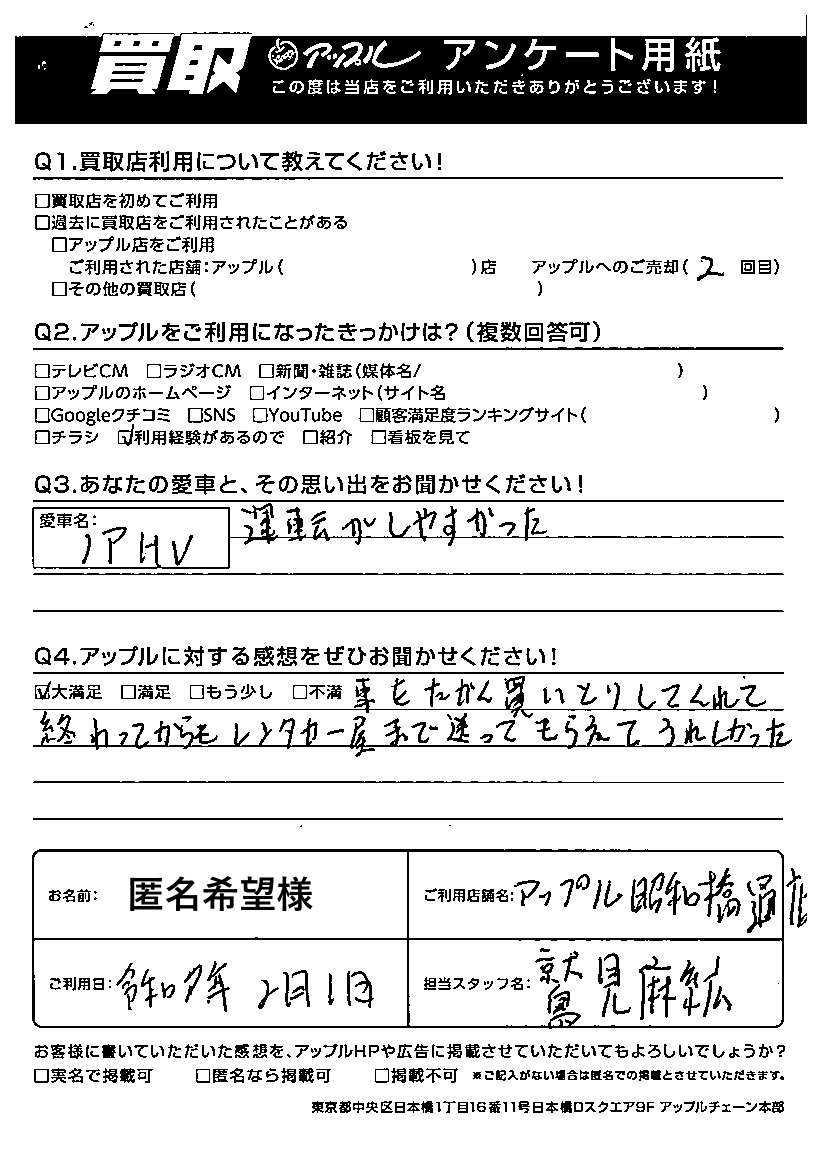 買取 アップル アンケート用紙
この度は当店をご利用いただきありがとうございます！
Q1.買取店利用について教えてください！
□買取店を初めてご利用
□過去に買取店をご利用されたことがある
□アップル店をご利用
ご利用された店舗：アップル（ ）店 アップルへのご売却（ 2 回目）
□その他の買取店（ ）
Q2.アップルをご利用になったきっかけは？（複数回答可）
□テレビCM □ラジオCM □新聞・雑誌（媒体名/ ）
□アップルのホームページ □インターネット（サイト名 ）
□Googleクチコミ □SNS □YouTube □顧客満足度ランキングサイト（ ）
□チラシ ☑利用経験があるので □紹介 □看板を見て
Q3.あなたの愛車と、その思い出をお聞かせください！
愛車名： 運転がしやすかった
PHV
Q4.アップルに対する感想をぜひお聞かせください！
☑大満足 □満足 □もう少し □不満 車をたかく買いとりしてくれて
終わってからもレンタカー屋まで送ってもらえてうれしかった
お名前： 匿名希望様 ご利用店舗名： アップル昭和橋通店
ご利用日： 令和7年2月1日 担当スタッフ名： 鷲見麻紘
お客様に書いていただいた感想を、アップルHPや広告に掲載させていただいてもよろしいでしょうか？
□実名で掲載可 □匿名なら掲載可 □掲載不可 ※ご記入がない場合は匿名での掲載とさせていただきます。
東京都中央区日本橋1丁目16番11号日本橋Dスクエア9F アップルチェーン本部